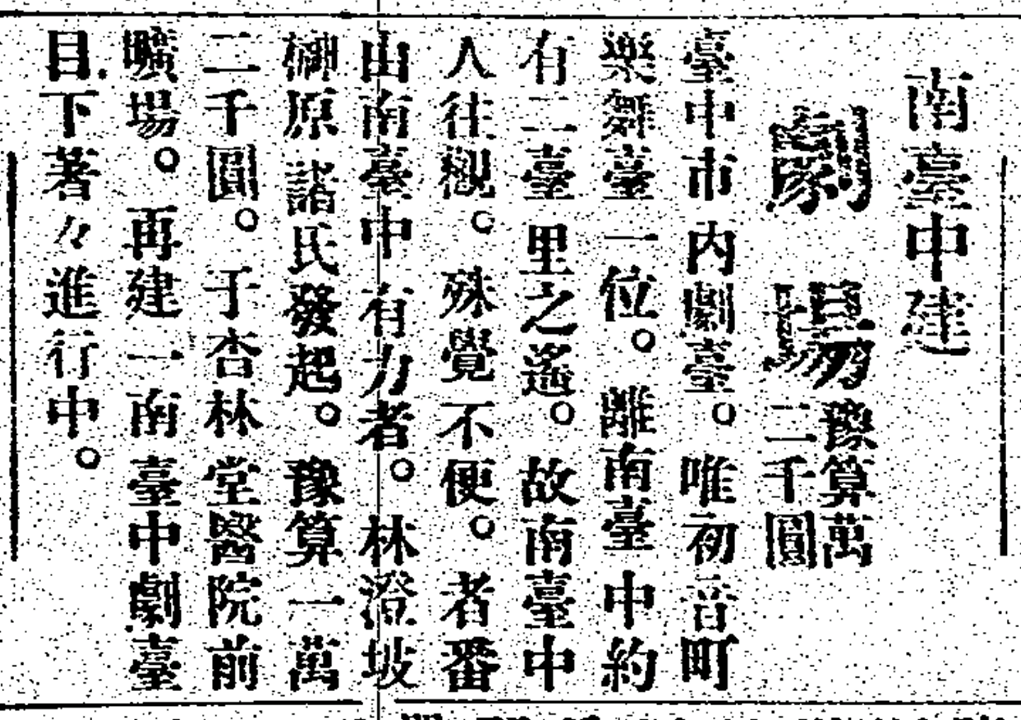 南臺中建
劇場
豫算萬
二千圓
臺中市内劇臺。唯初音町
樂舞臺一位。離南臺中約
有二臺里之遙。故南臺中
人往觀。殊覺不便。者番
由南臺中有力者。林澄坡
槲原諸氏發起。豫算一萬
二千圓。于杏林堂醫院前
曠場。再建一南臺中劇臺
目下著々進行中。